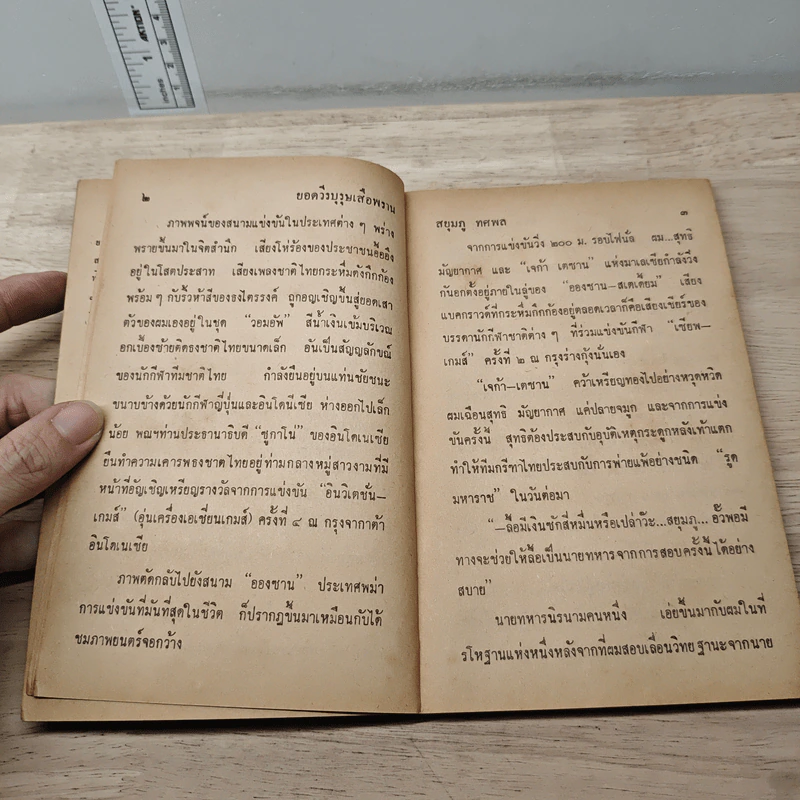 ACTION
inches 1 2 3 4
๒ ยอดวีรบุรุษเสือพราน
ภาพพจน์ของสนามแข่งขันในประเทศต่าง ๆ พร่าง
พรายขึ้นมาในจิตสำนึก เสียงโห่ร้องของประชาชนอื้ออึง
อยู่ในโสตประสาท เสียงเพลงชาติไทยกระหึ่มดังกึกก้อง
พร้อม ๆ กับริ้วห้าสีของธงไตรรงค์ ถูกอญเชิญขึ้นสู่ยอดเสา
ตัวของผมเองอยู่ในชุด “วอมอัพ” สีน้ำเงินเข้มบริเวณ
อกเบื้องซ้ายติดธงชาติไทยขนาดเล็ก อันเป็นสัญญลักขณ์
ของนักกีฬาทีมชาติไทย กำลังยืนอยู่บนแท่นชัยชนะ
ขนาบข้างด้วยนักกีฬาญี่ปุ่นและอินโดนีเซีย ห่างออกไปเล็ก
น้อย พณฯท่านประธานาธิบดี “ซูกาโน่” ของอินโดเนเซีย
ยืนทำความเคารพธงชาติไทยอยู่ท่ามกลางหมู่สาวงามที่มี
หน้าที่อัญเชิญเหรียญรางวัลจากการแข่งขัน “อินวิเตชั่น—
เกมส์” (อุ่นเครื่องเอเซี่ยนเกมส์) ครั้งที่ ๔ ณ กรุงจากาต้า
อินโดเนเซีย
ภาพตัดกลับไปยังสนาม “อองซาน” ประเทศพม่า
การแข่งขันที่มันที่สุดในชีวิต ก็ปรากฏขึ้นมาเหมือนกับได้
ชมภาพยนตร์จอกว้าง
สยุมภู ทศพล ๓
จากการแข่งขันวิ่ง ๒๐๐ ม. รอบไฟนั่ล ผม...สุทธิ
มัญยากาศ และ “เจก้า เตซาน” แห่งมาเลเซียกำลังวิ่ง
กันอกตั้งอยู่ภายในลู่ของ “อองซาน—สเตเดี้ยม” เสียง
แบคกราวด์ที่กระหึ่มกึกก้องอยู่ตลอดเวลาก็คือเสียงเชียร์ของ
บรรดานักกีฬาชาติต่าง ๆ ที่ร่วมแข่งขันกีฬา “เซียพ—
เกมส์” ครั้งที่ ๒ ณ กรุงร่างกุ้งนั่นเอง
“เจก้า—เตซาน” คว้าเหรียญทองไปอย่างหวุดหวิด
ผมเฉือนสุทธิ มัญยากาศ แค่ปลายจมูก และจากการแข่ง
ขันครั้งนี้ สุทธิต้องประสบกับอุบัติเหตุกระดูกหลังเท้าแตก
ทำให้ทีมกรีฑาไทยประสบกับการพ่ายแพ้อย่างชนิด “รูด
มหาราช” ในวันต่อมา
“—ลื้อมีเงินซักสี่หมื่นหรือเปล่าวะ...สยุมภู... อั๊วพอมี
ทางจะช่วยให้ลื้อเป็นนายทหารจากการสอบครั้งนี้ได้อย่าง
สบาย”
นายทหารนิรนามคนหนึ่ง เอ่ยขึ้นมากับผมในที่
รโหฐานแห่งหนึ่งหลังจากที่ผมสอบเลื่อนวิทยฐานะจากนาย